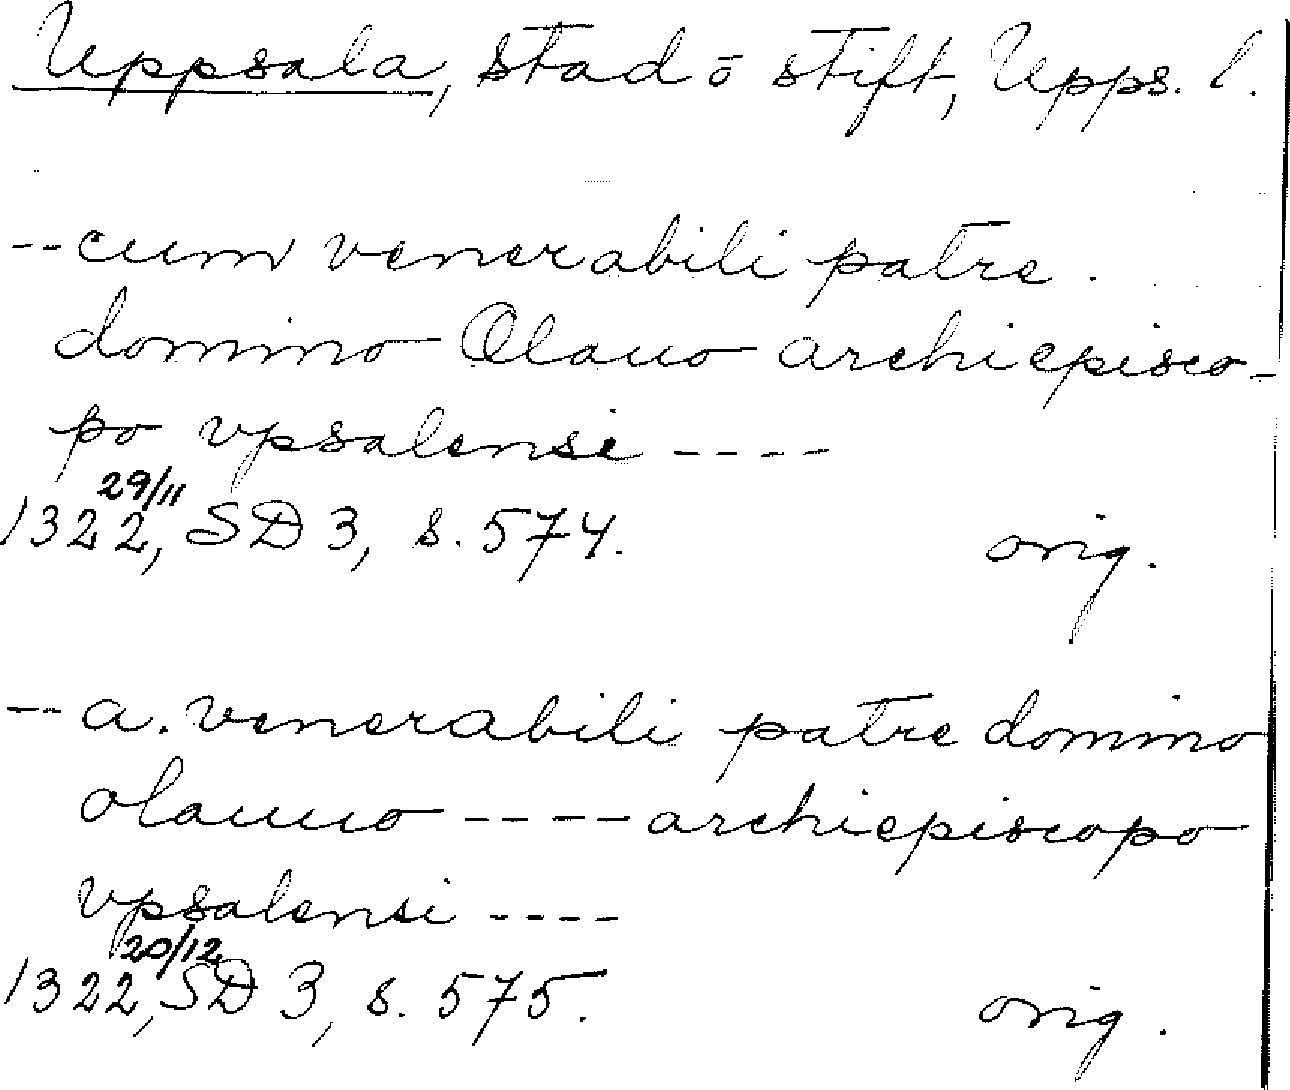 Uppsala, stad ō stift, Upps. l.
-- cum venerabili patre . . . .
domino Olauo archiepisco-
po vpsalensi ----
29/11
1322, SD 3, s. 574. orig.
-- a. venerabili patre domino
olauuo ---- archiepiscopo
vpsalensi ----
20/12
1322, SD 3, s. 575. orig.